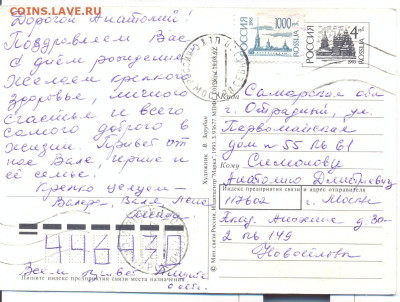 COINS.LAVE.RU
Дорогой Анатолий!
Поздравляем Вас
с днём рождения
Желаем крепкого
здоровья, личного
счастья и всего
самого доброго в
жизни. Привет от
ное Вале, Ирине и
её семье.
Крепко целуем
Валера, Валя, Лена
446430
Всем Привет Пишите
РОССИЯ
1000
ROSSIJA
РОССИЯ
4
ROSSIJA
Художник В. Зарубин
Самарская обл
г. Отрадный, ул.
Первомайская
дом № 55 кв 61
Кому Симонову
Анатолию Дмитриевичу
Индекс предприятия связи и адрес отправителя
117602 г. Москва
д. 30-
2 кв 149
Новосёловы
Пишите индекс предприятия связи места назначения